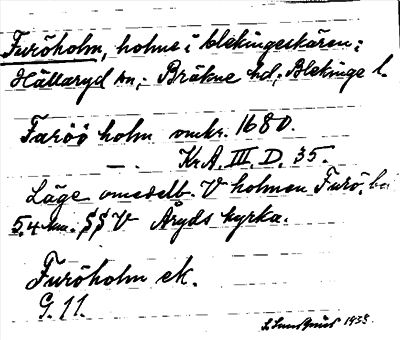 Furöholm, holme i blekingeskären;
Hällaryd sn,; Bräkne hd; Blekinge l.
Faröö holm omkr. 1680.
— . KrA. III. D. 35.
Läge omedelb. V holmen Furö,
5,4 km. SSV Åryds kyrka.
Furöholm ek.
G. 11.
1938